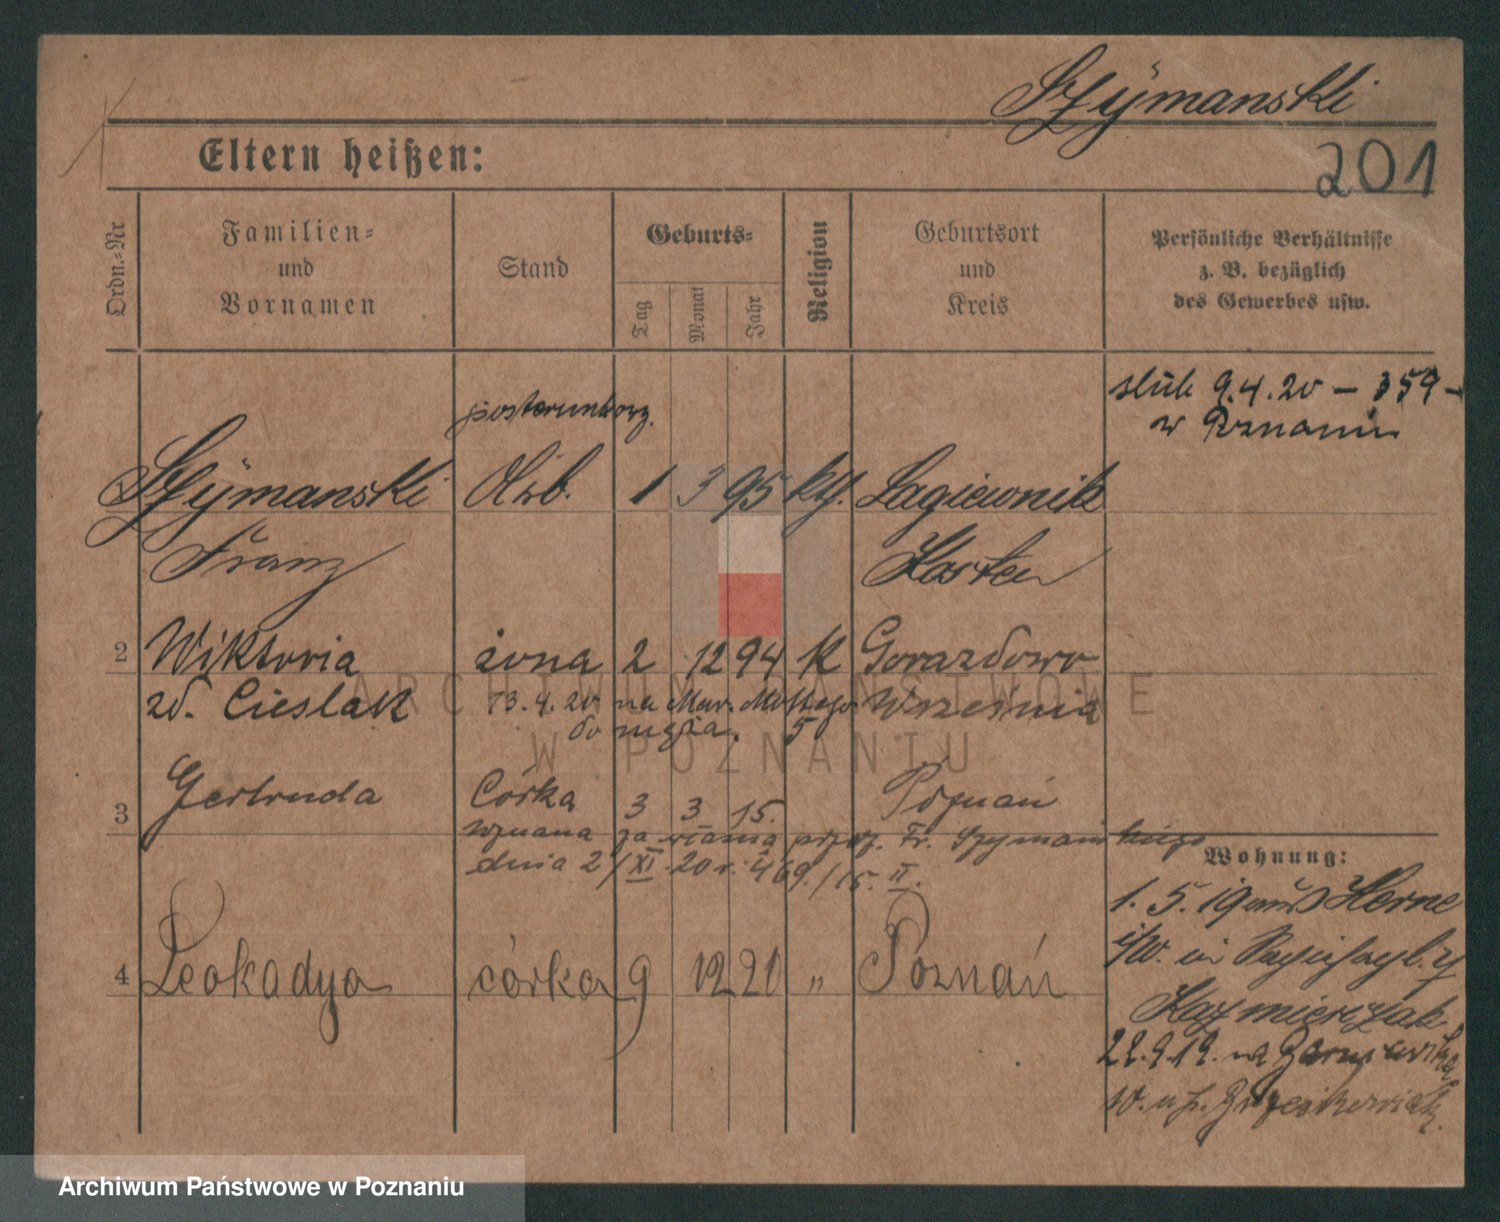 Szÿmanski
201
Eltern heißen:
Ordn.-Nr
Familien-
und
Vornamen
Stand
Geburts-
Tag
Monat
Jahr
Religion
Geburtsort
und
Kreis
Persönliche Verhältnisse
z. B. bezüglich
des Gewerbes usw.
ślub 9.4.20 – 359 –
w Poznaniu
Szÿmanski 1 3 95 Lagiewnik
Franz Kosten
2 Wiktoria żona 2 12 94 K Gorazdowo
zd. Cieslak 13.4.20 na Mar. Mottego Września
do męża. 5
3 Gertruda Córka 3 3 15. Poznań
uznana za własną przez. Fr. Szymańskiego
dnia 2/XI 20 r. 469/15. II.
Wohnung:
1. 5. 19 aus Herne
i/W.
Kazmierczak
4 Leokadya córka 9 12 20 " Poznań
22.9.19. na
w. u p.
ARCHIWUM PAŃSTWOWE
W POZNANIU
Archiwum Państwowe w Poznaniu